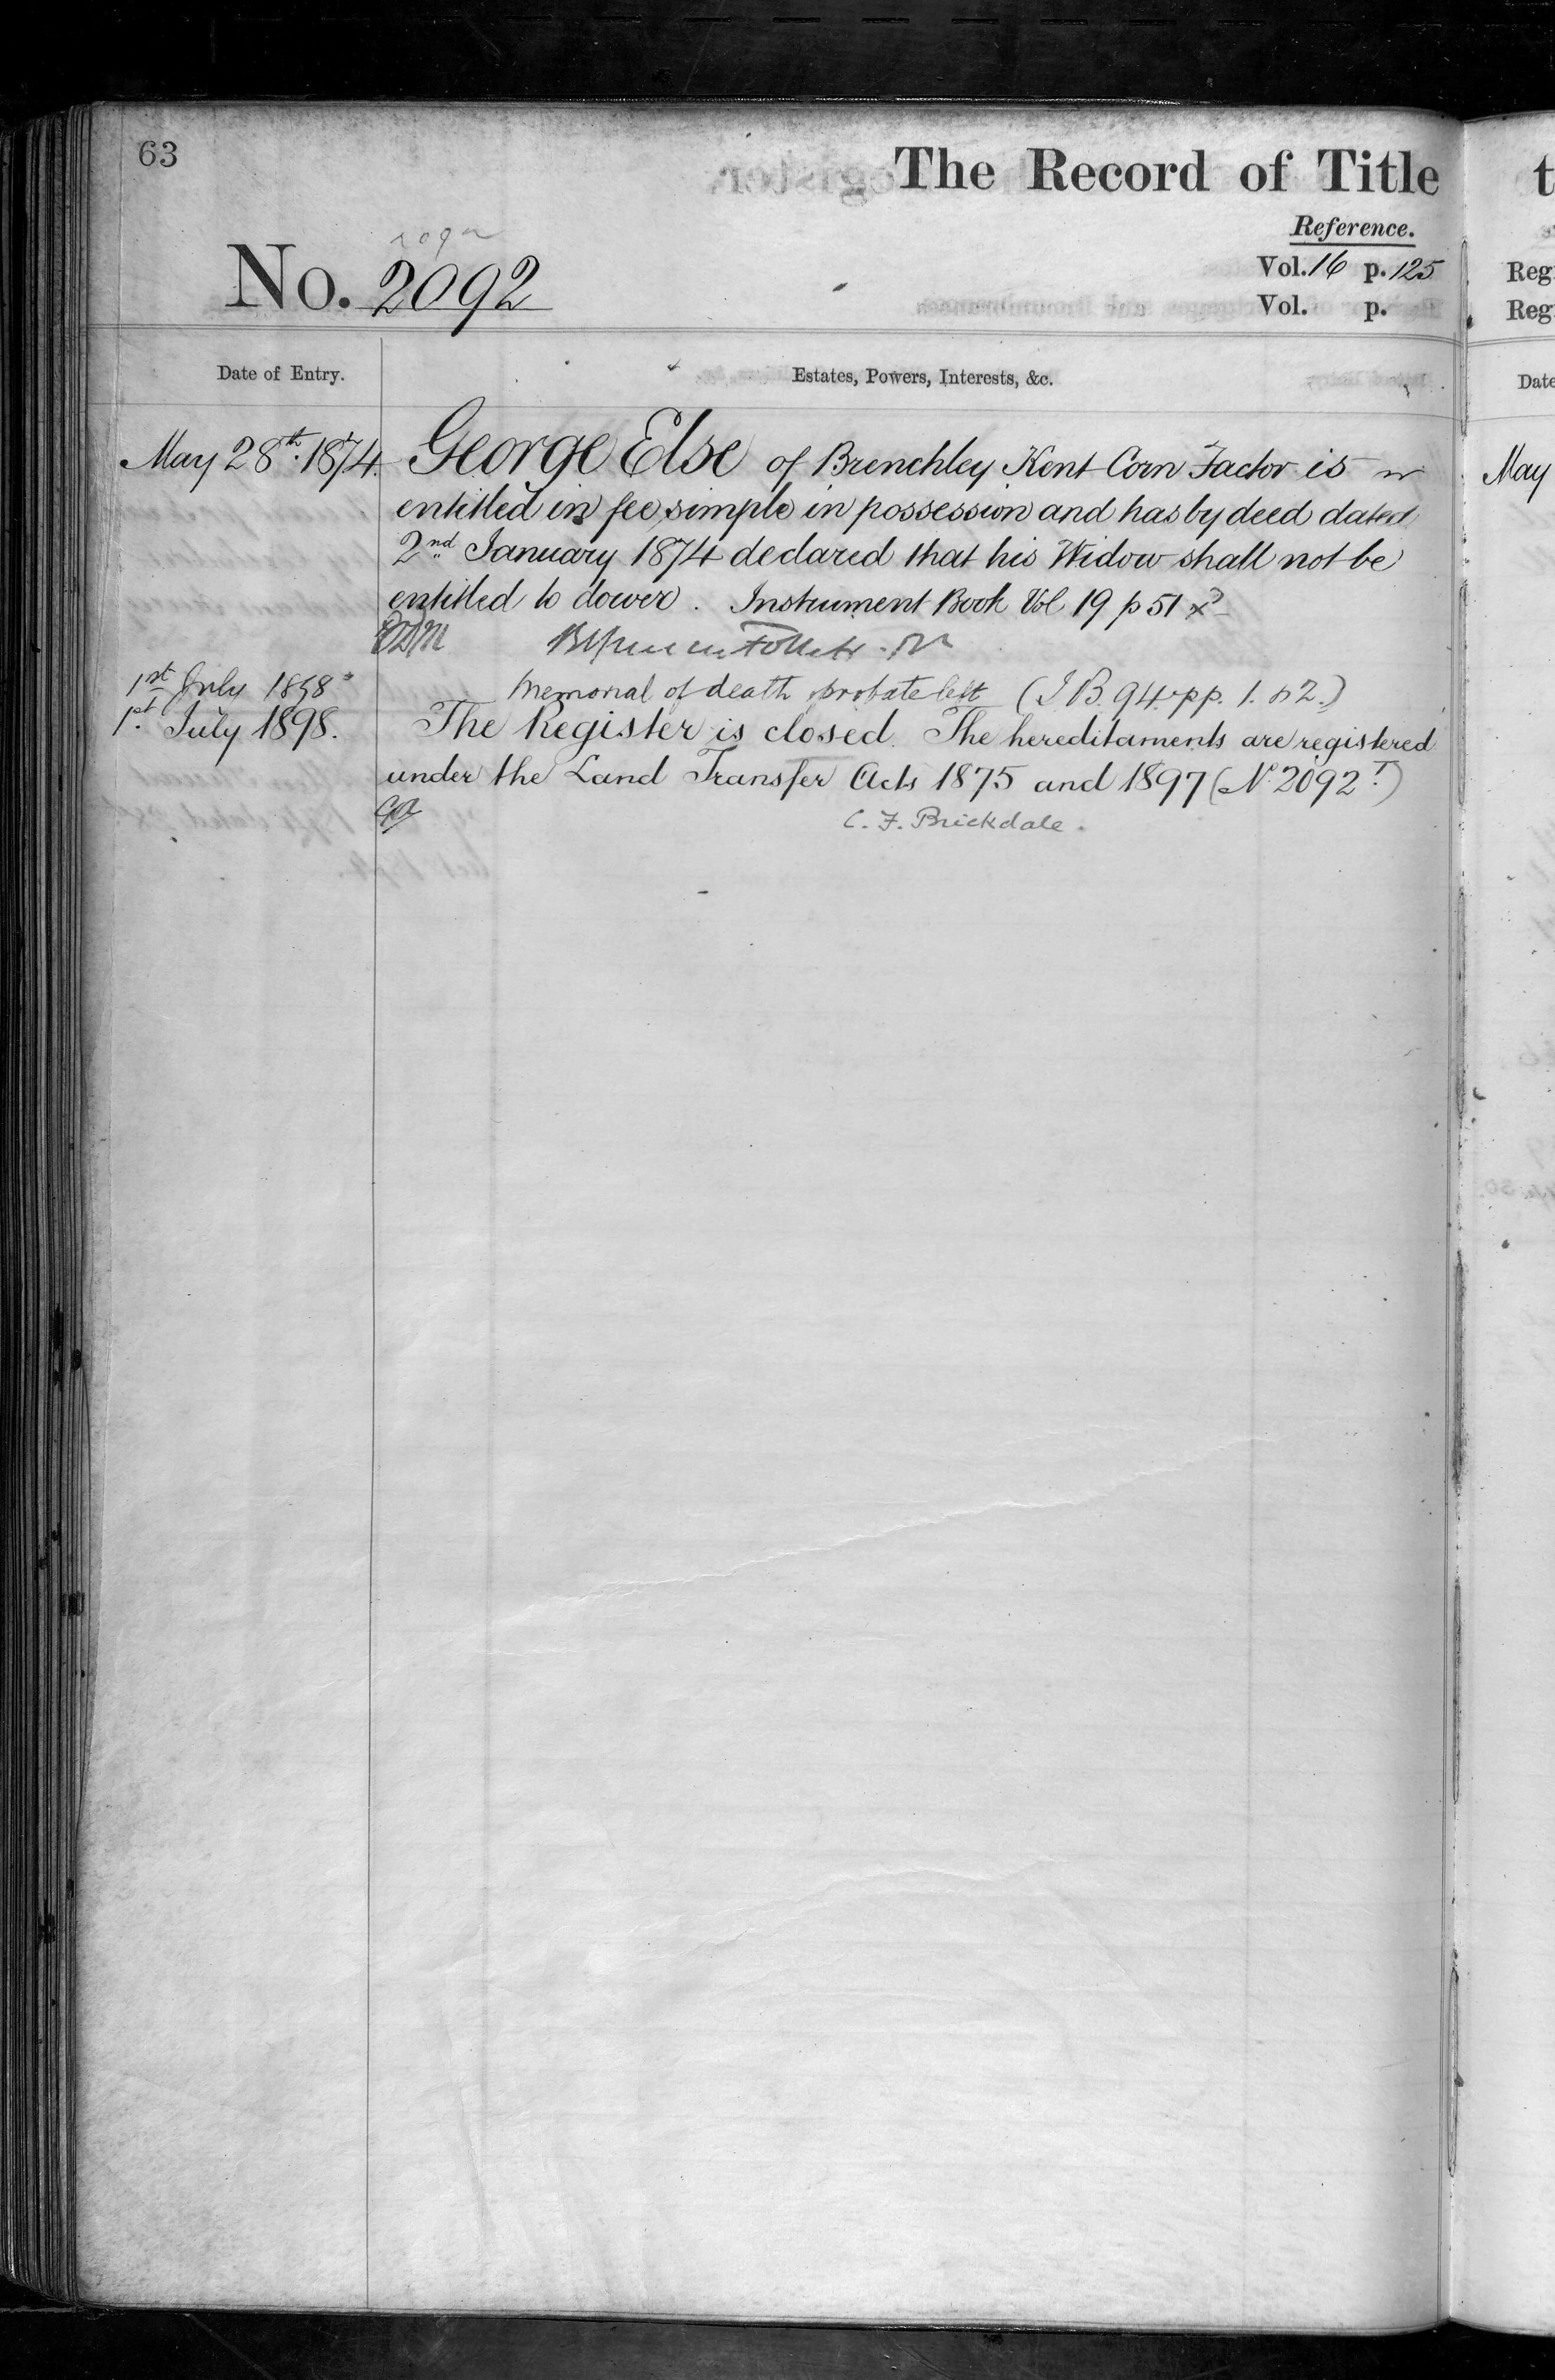 63
The Record of Title
Reference.
No. 2092
Vol. 16 p. 125
Vol. p.
Date of Entry.
Estates, Powers, Interests, &c.
May 28th. 1874. George Else of Brenchley Kent Corn Factor is
entitled in fee simple in possession and has by deed dated
2nd January 1874 declared that his Widow shall not be
entitled to dower. Instrument Book Vol 19 p 51
1st July 1898 Memorial of death probate left (I B. 94. pp. 1. & 2.)
1st July 1898. The Register is closed. The hereditaments are registered
under the Land Transfer Acts 1875 and 1897 (No. 2092 T)
C. F. Brickdale.
t
Reg
Reg
Date
May